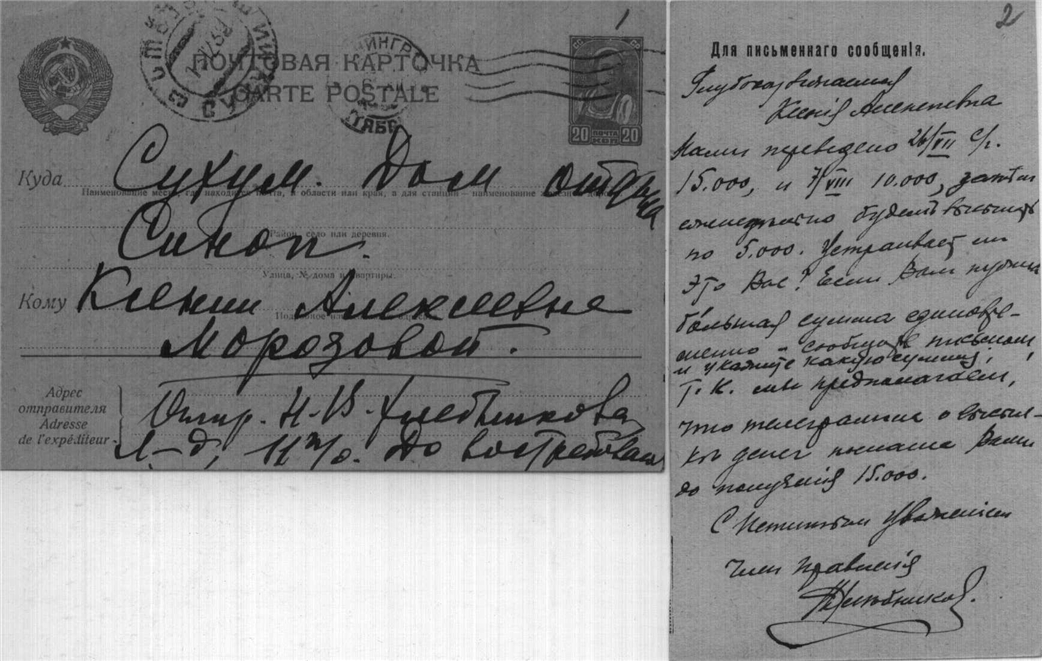 1
ПОЧТОВАЯ КАРТОЧКА
CARTE POSTALE
20 ПОЧТА 20
КОП
Куда Сухум. Дом отдыха
Наименование места, где находится почта, и области или края, а для станций – наименование
Синоп.
Район, село или деревня.
Улица, № дома и квартиры.
Кому Ксении Алексеевне
Морозовой.
Адрес
отправителя
Adresse
de l'expéditeur
Отпр. Н-В-Хлебникова
Л-д, 11 п/о. До востребован
2
Для письменнаго сообщенiя.
Глубокоуважаемая
Ксенiя Алексеевна
Нами переведено 26/VII с/г.
15.000, и 7/VIII 10.000, затем
ежемесячно будем высылать
по 5.000. Устраивает ли
Это Вас? Если Вам нужна
бóльшая сумма единовре-
менно – сообщите письмом
и укажите какую сумму,
т.к. мы предполагаем,
что телеграмма о высыл-
ке денег послана Вами
до полученiя 15.000.
С Истинным Уваженiем
Член правленiя
Хлебников.